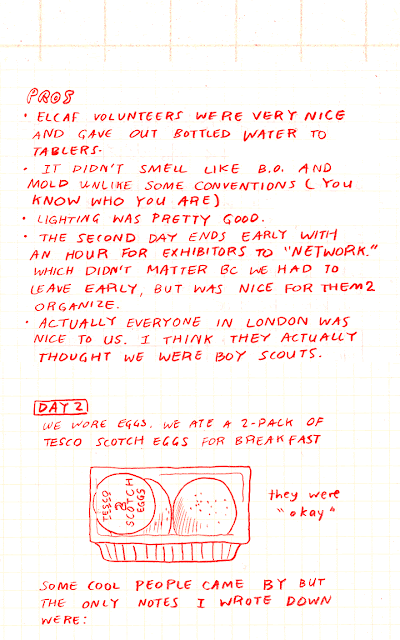 PROS
• ELCAF VOLUNTEERS WERE VERY NICE
AND GAVE OUT BOTTLED WATER TO
TABLERS.
• IT DIDN'T SMELL LIKE B.O. AND
MOLD UNLIKE SOME CONVENTIONS (YOU
KNOW WHO YOU ARE)
• LIGHTING WAS PRETTY GOOD.
• THE SECOND DAY ENDS EARLY WITH
AN HOUR FOR EXHIBITORS TO "NETWORK."
WHICH DIDN'T MATTER BC WE HAD TO
LEAVE EARLY, BUT WAS NICE FOR THEM 2
ORGANIZE.
• ACTUALLY EVERYONE IN LONDON WAS
NICE TO US. I THINK THEY ACTUALLY
THOUGHT WE WERE BOY SCOUTS.
DAY 2
WE WORE EGGS. WE ATE A 2-PACK OF
TESCO SCOTCH EGGS FOR BREAKFAST
TESCO
2
SCOTCH
EGGS
they were
"okay"
SOME COOL PEOPLE CAME BY BUT
THE ONLY NOTES I WROTE DOWN
WERE: